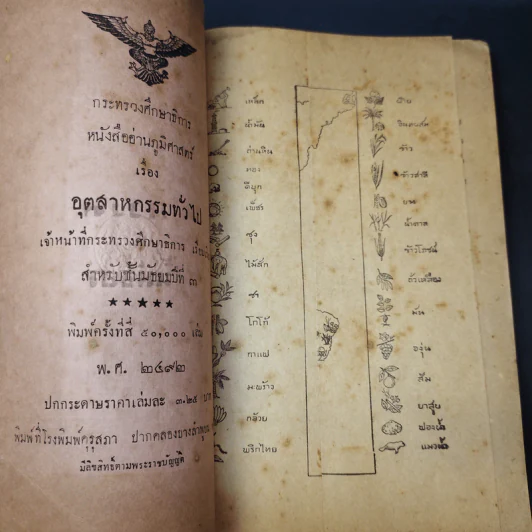 กระทรวงศึกษาธิการ
หนังสืออ่านภูมิศาสตร์
เรื่อง
อุตสาหกรรมทั่วไป
เจ้าหน้าที่กระทรวงศึกษาธิการ
สำหรับชั้นมัธยมปีที่ ๓
★★★★★
พิมพ์ครั้งที่สี่ ๕๐,๐๐๐ เล่ม
พ.ศ. ๒๔๙๒
ปกกระดาษราคาเล่มละ ๓.๒๕
พิมพ์ที่โรงพิมพ์คุรุสภา ปากคลองบางลำพู
มีลิขสิทธิ์ตามพระราชบัญญัติ
เหล็ก
น้ำมัน
ถ่านหิน
ทอง
ดีบุก
เพ็ชร
ซุง
ไม้สัก
ชา
โกโก้
กาแฟ
มะพร้าว
กล้วย
พริกไทย
ฝ้าย
อินทผลัม
ข้าว
ข้าวสาลี
น้ำตาล
ข้าวโพชน์
ถั่วเหลือง
มัน
องุ่น
ส้ม
ยาสูบ
ฟองน้ำ
แมวน้ำ